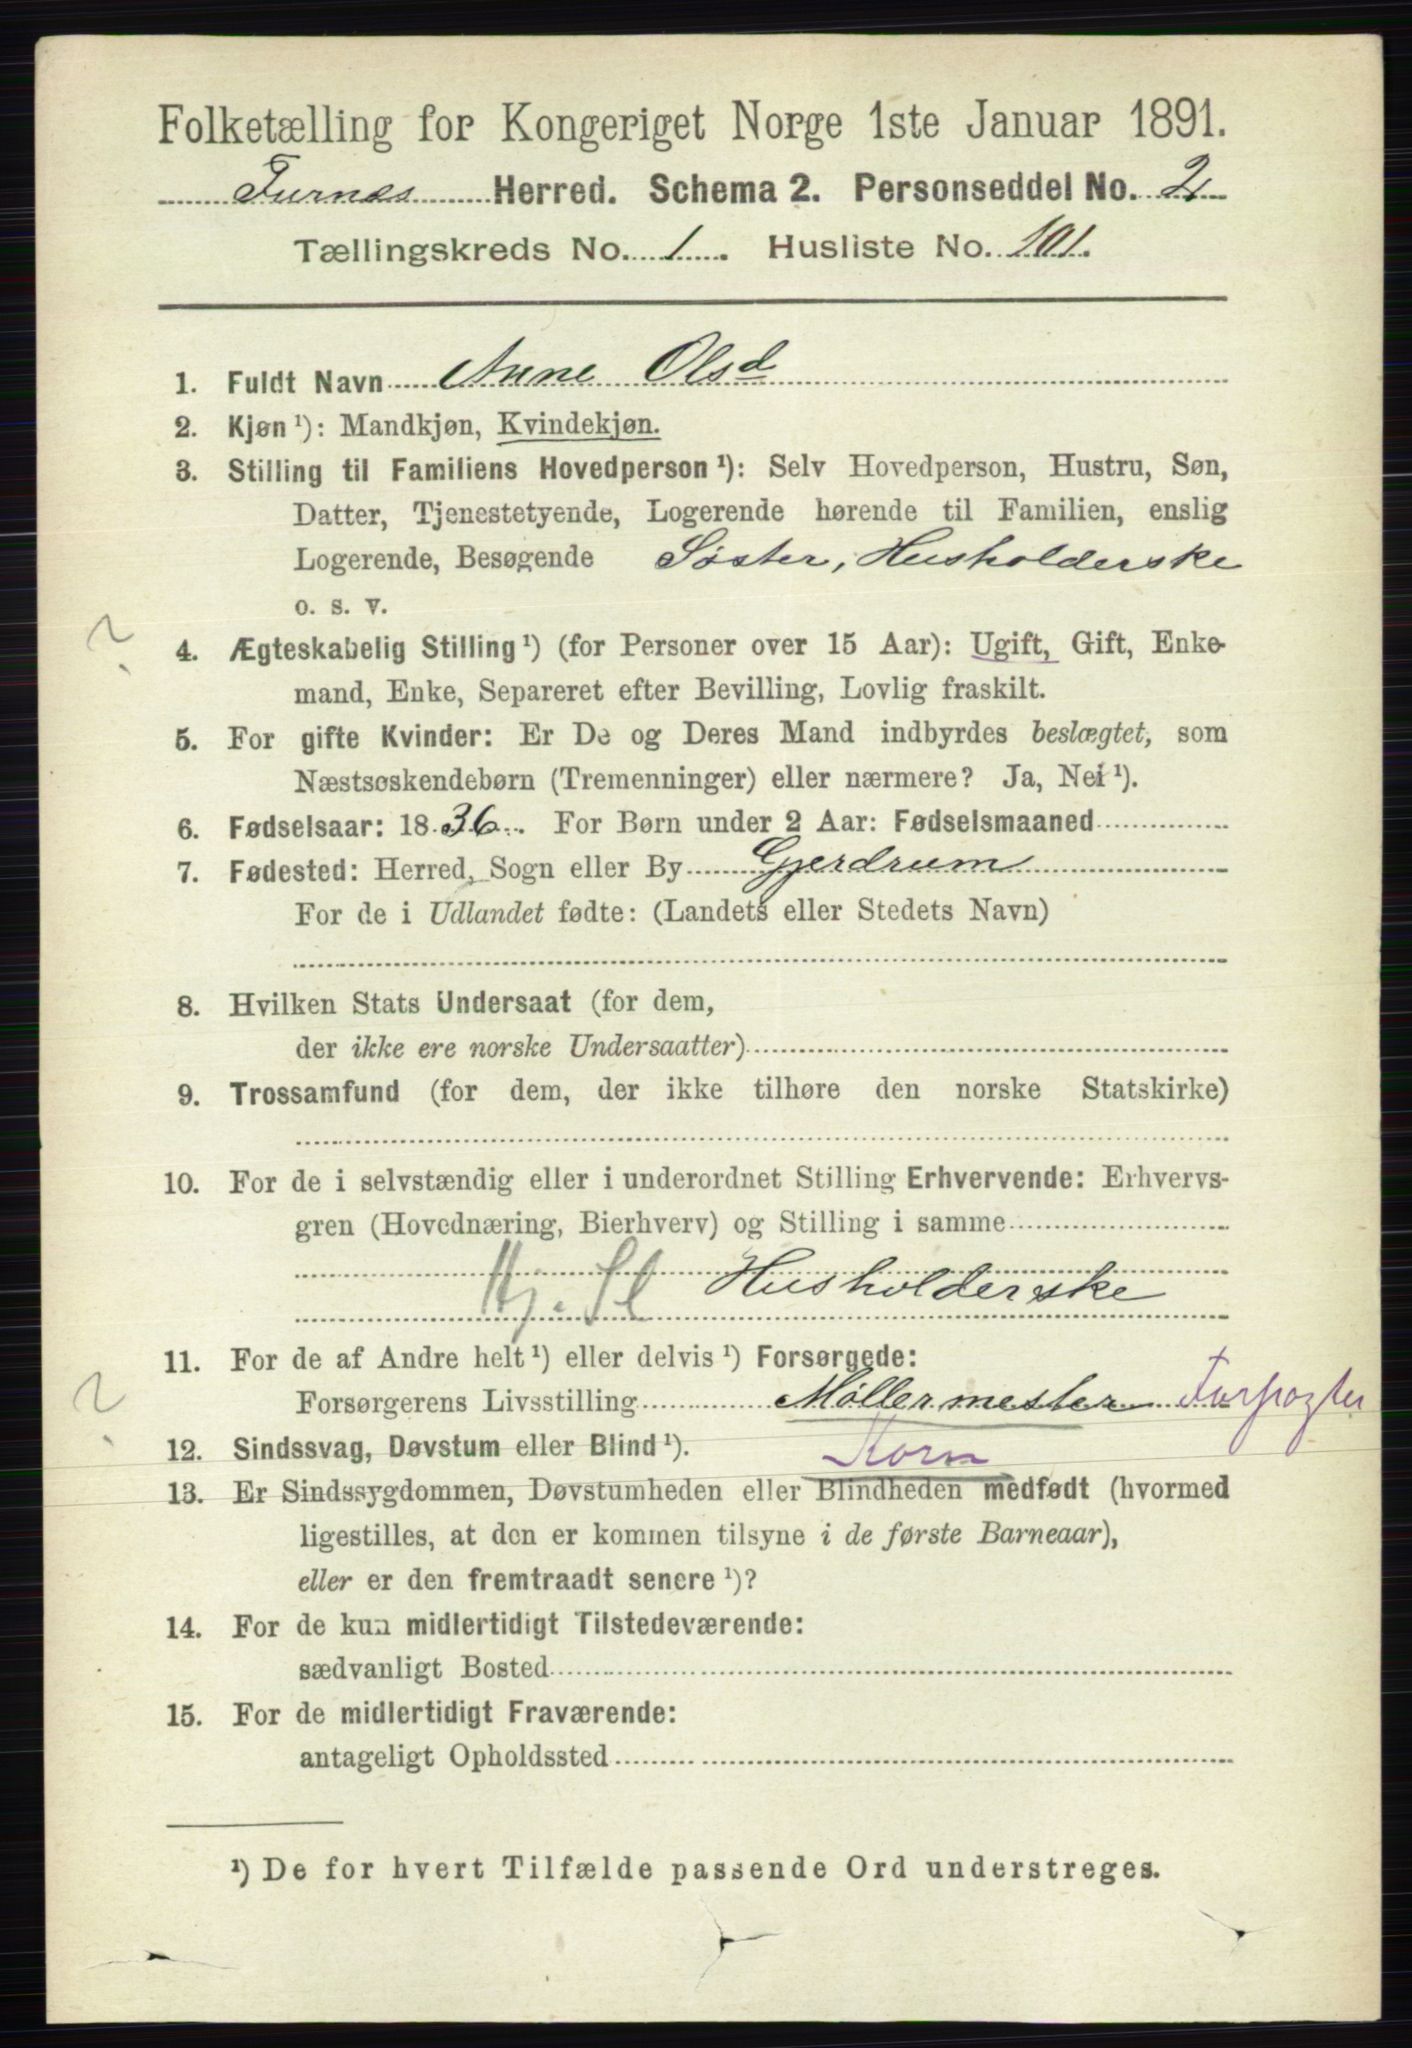 Folketælling for Kongeriget Norge 1ste Januar 1891.
Furnes Herred. Schema 2. Personseddel No. 2
Tællingskreds No. 1. Husliste No. 101.
1. Fuldt Navn Anne Olsd
2. Kjøn ¹): Mandkjøn, Kvindekjøn.
3. Stilling til Familiens Hovedperson ¹): Selv Hovedperson, Hustru, Søn,
Datter, Tjenestetyende, Logerende hørende til Familien, enslig
Logerende, Besøgende Søster, Husholderske
o. s. v.
?
4. Ægteskabelig Stilling ¹) (for Personer over 15 Aar): Ugift, Gift, Enke-
mand, Enke, Separeret efter Bevilling, Lovlig fraskilt.
5. For gifte Kvinder: Er De og Deres Mand indbyrdes beslægtet, som
Næstsøskendebørn (Tremenninger) eller nærmere? Ja, Nei ¹).
6. Fødselsaar: 1836. For Børn under 2 Aar: Fødselsmaaned
7. Fødested: Herred, Sogn eller By Gjerdrum
For de i Udlandet fødte: (Landets eller Stedets Navn)
8. Hvilken Stats Undersaat (for dem,
der ikke ere norske Undersaatter)
9. Trossamfund (for dem, der ikke tilhøre den norske Statskirke)
10. For de i selvstændig eller i underordnet Stilling Erhvervende: Erhvervs-
gren (Hovednæring, Bierhverv) og Stilling i samme
Hj. Sl Husholderske
11. For de af Andre helt ¹) eller delvis ¹) Forsørgede:
? Forsørgerens Livsstilling Møllermester Forpagter
12. Sindssvag, Døvstum eller Blind ¹). Korn
13. Er Sindssygdommen, Døvstumheden eller Blindheden medfødt (hvormed
ligestilles, at den er kommen tilsyne i de første Barneaar),
eller er den fremtraadt senere ¹)?
14. For de kun midlertidigt Tilstedeværende:
sædvanligt Bosted
15. For de midlertidigt Fraværende:
antageligt Opholdssted
¹) De for hvert Tilfælde passende Ord understreges.